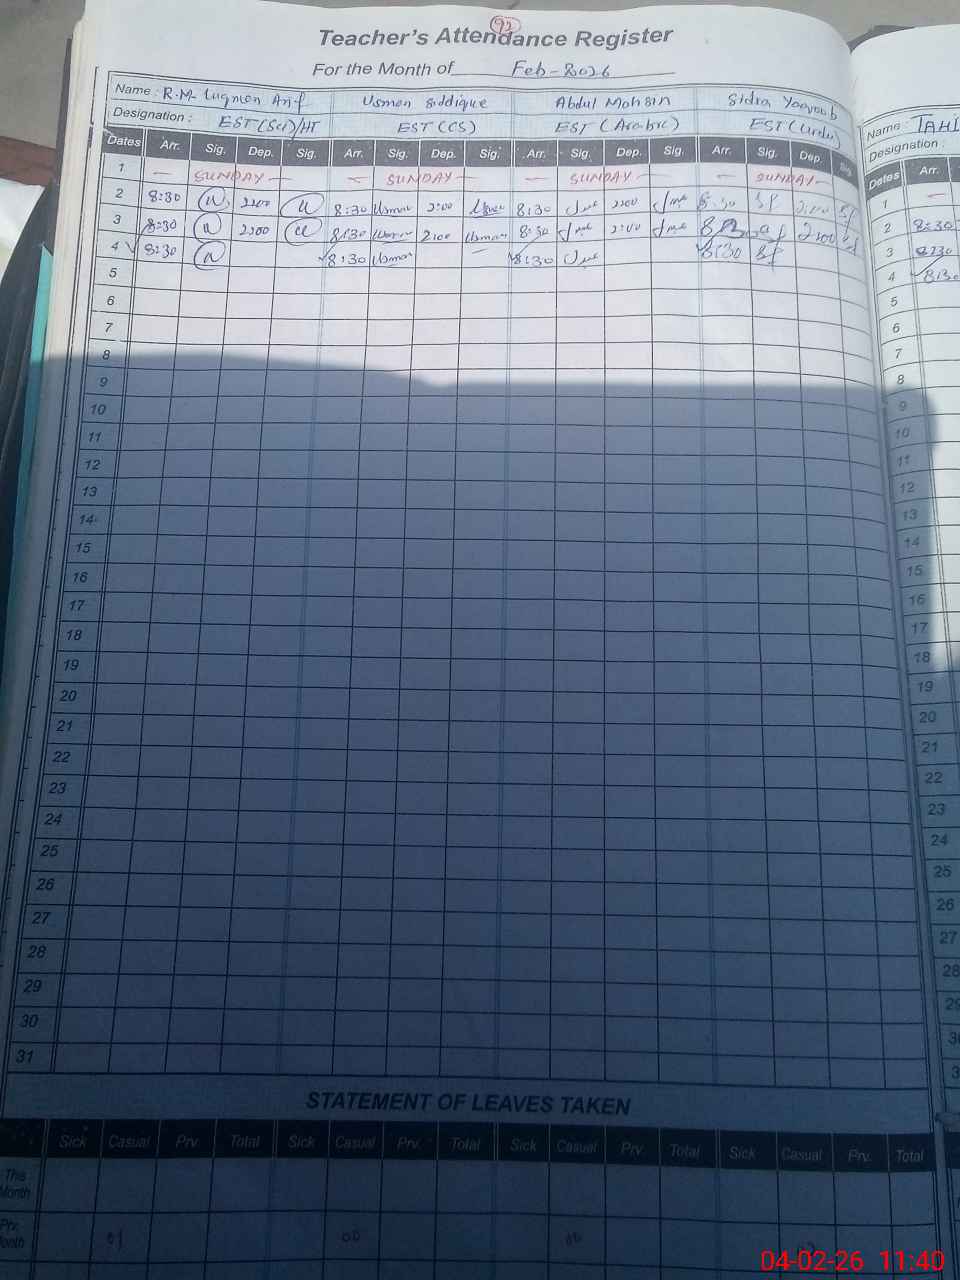 92
Teacher's Attendance Register
For the Month of Feb-2026
Name: R.M. Luqman Arif Usman Siddique Abdul Mohsin Sidra Yaqoob
Designation: EST(Sci)/HT EST(CS) EST(Arabic) EST(Urdu)
Dates Arr. Sig. Dep. Sig. Arr. Sig. Dep. Sig. Arr. Sig. Dep. Sig. Arr. Sig. Dep. Sig.
1 SUNDAY SUNDAY SUNDAY SUNDAY
2 8:30 2:00 8:30 Usman 2:00 Usman 8:30 2:00 8:30 2:00
3 8:30 2:00 8:30 Usman 2:00 Usman 8:30 2:00 2:00
4 8:30 8:30 Usman 8:30 8:30
5
6
7
8
9
10
11
12
13
14
15
16
17
18
19
20
21
22
23
24
25
26
27
28
29
30
31
STATEMENT OF LEAVES TAKEN
Sick Casual Prv. Total Sick Casual Prv. Total Sick Casual Prv. Total Sick Casual Prv. Total
This Month
Prv. Month 01 00 00
Name: TAHI
Designation:
Dates Arr.
1
2 8:30
3 8:30
4 8:30
5
6
7
8
9
10
11
12
13
14
15
16
17
18
19
20
21
22
23
24
25
26
27
28
29
04-02-26 11:40